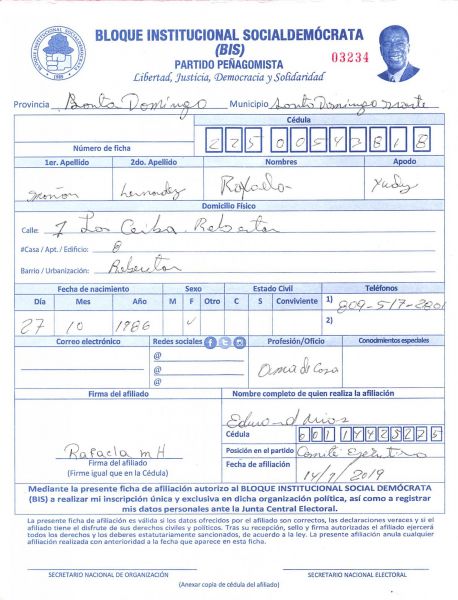 BLOQUE INSTITUCIONAL SOCIALDEMÓCRATA
(BIS)
PARTIDO PEÑAGOMISTA
03234
Libertad, Justicia, Democracia y Solidaridad
Provincia Santo Domingo Municipio Santo Domingo norte
Cédula
Número de ficha 225 0054381 8
1er. Apellido 2do. Apellido Nombres Apodo
Hernandez Rafaela Yudy
Domicilio Físico
Calle: 7 La Ceiba
#Casa / Apt. / Edificio: 8
Barrio / Urbanización:
Fecha de nacimiento Sexo Estado Civil Teléfonos
Día Mes Año M F Otro C S Conviviente 1) 809-517-2801
27 10 1986 ✓ 2)
Correo electrónico Redes sociales Profesión/Oficio Conocimientos especiales
@
@ Ama de casa
@
Firma del afiliado Nombre completo de quien realiza la afiliación
Edward Rios
Cédula 001 1442522 5
Rafaela M H Posición en el partido Comité Ejecutivo
Firma del afiliado
(Firme igual que en la Cédula) Fecha de afiliación 14/7/2019
Mediante la presente ficha de afiliación autorizo al BLOQUE INSTITUCIONAL SOCIAL DEMÓCRATA
(BIS) a realizar mi inscripción única y exclusiva en dicha organización política, así como a registrar
mis datos personales ante la Junta Central Electoral.
La presente ficha de afiliación es válida si los datos ofrecidos por el afiliado son correctos, las declaraciones veraces y si el
afiliado tiene el disfrute de sus derechos civiles y políticos. Tras su recepción, sello y firma autorizadas el afiliado ejercerá
todos los derechos y los deberes estatutariamente sancionados, de acuerdo a la ley. La presente afiliación anula cualquier
afiliación realizada con anterioridad a la fecha que aparece en esta ficha.
SECRETARIO NACIONAL DE ORGANIZACIÓN SECRETARIO NACIONAL ELECTORAL
(Anexar copia de cédula del afiliado)